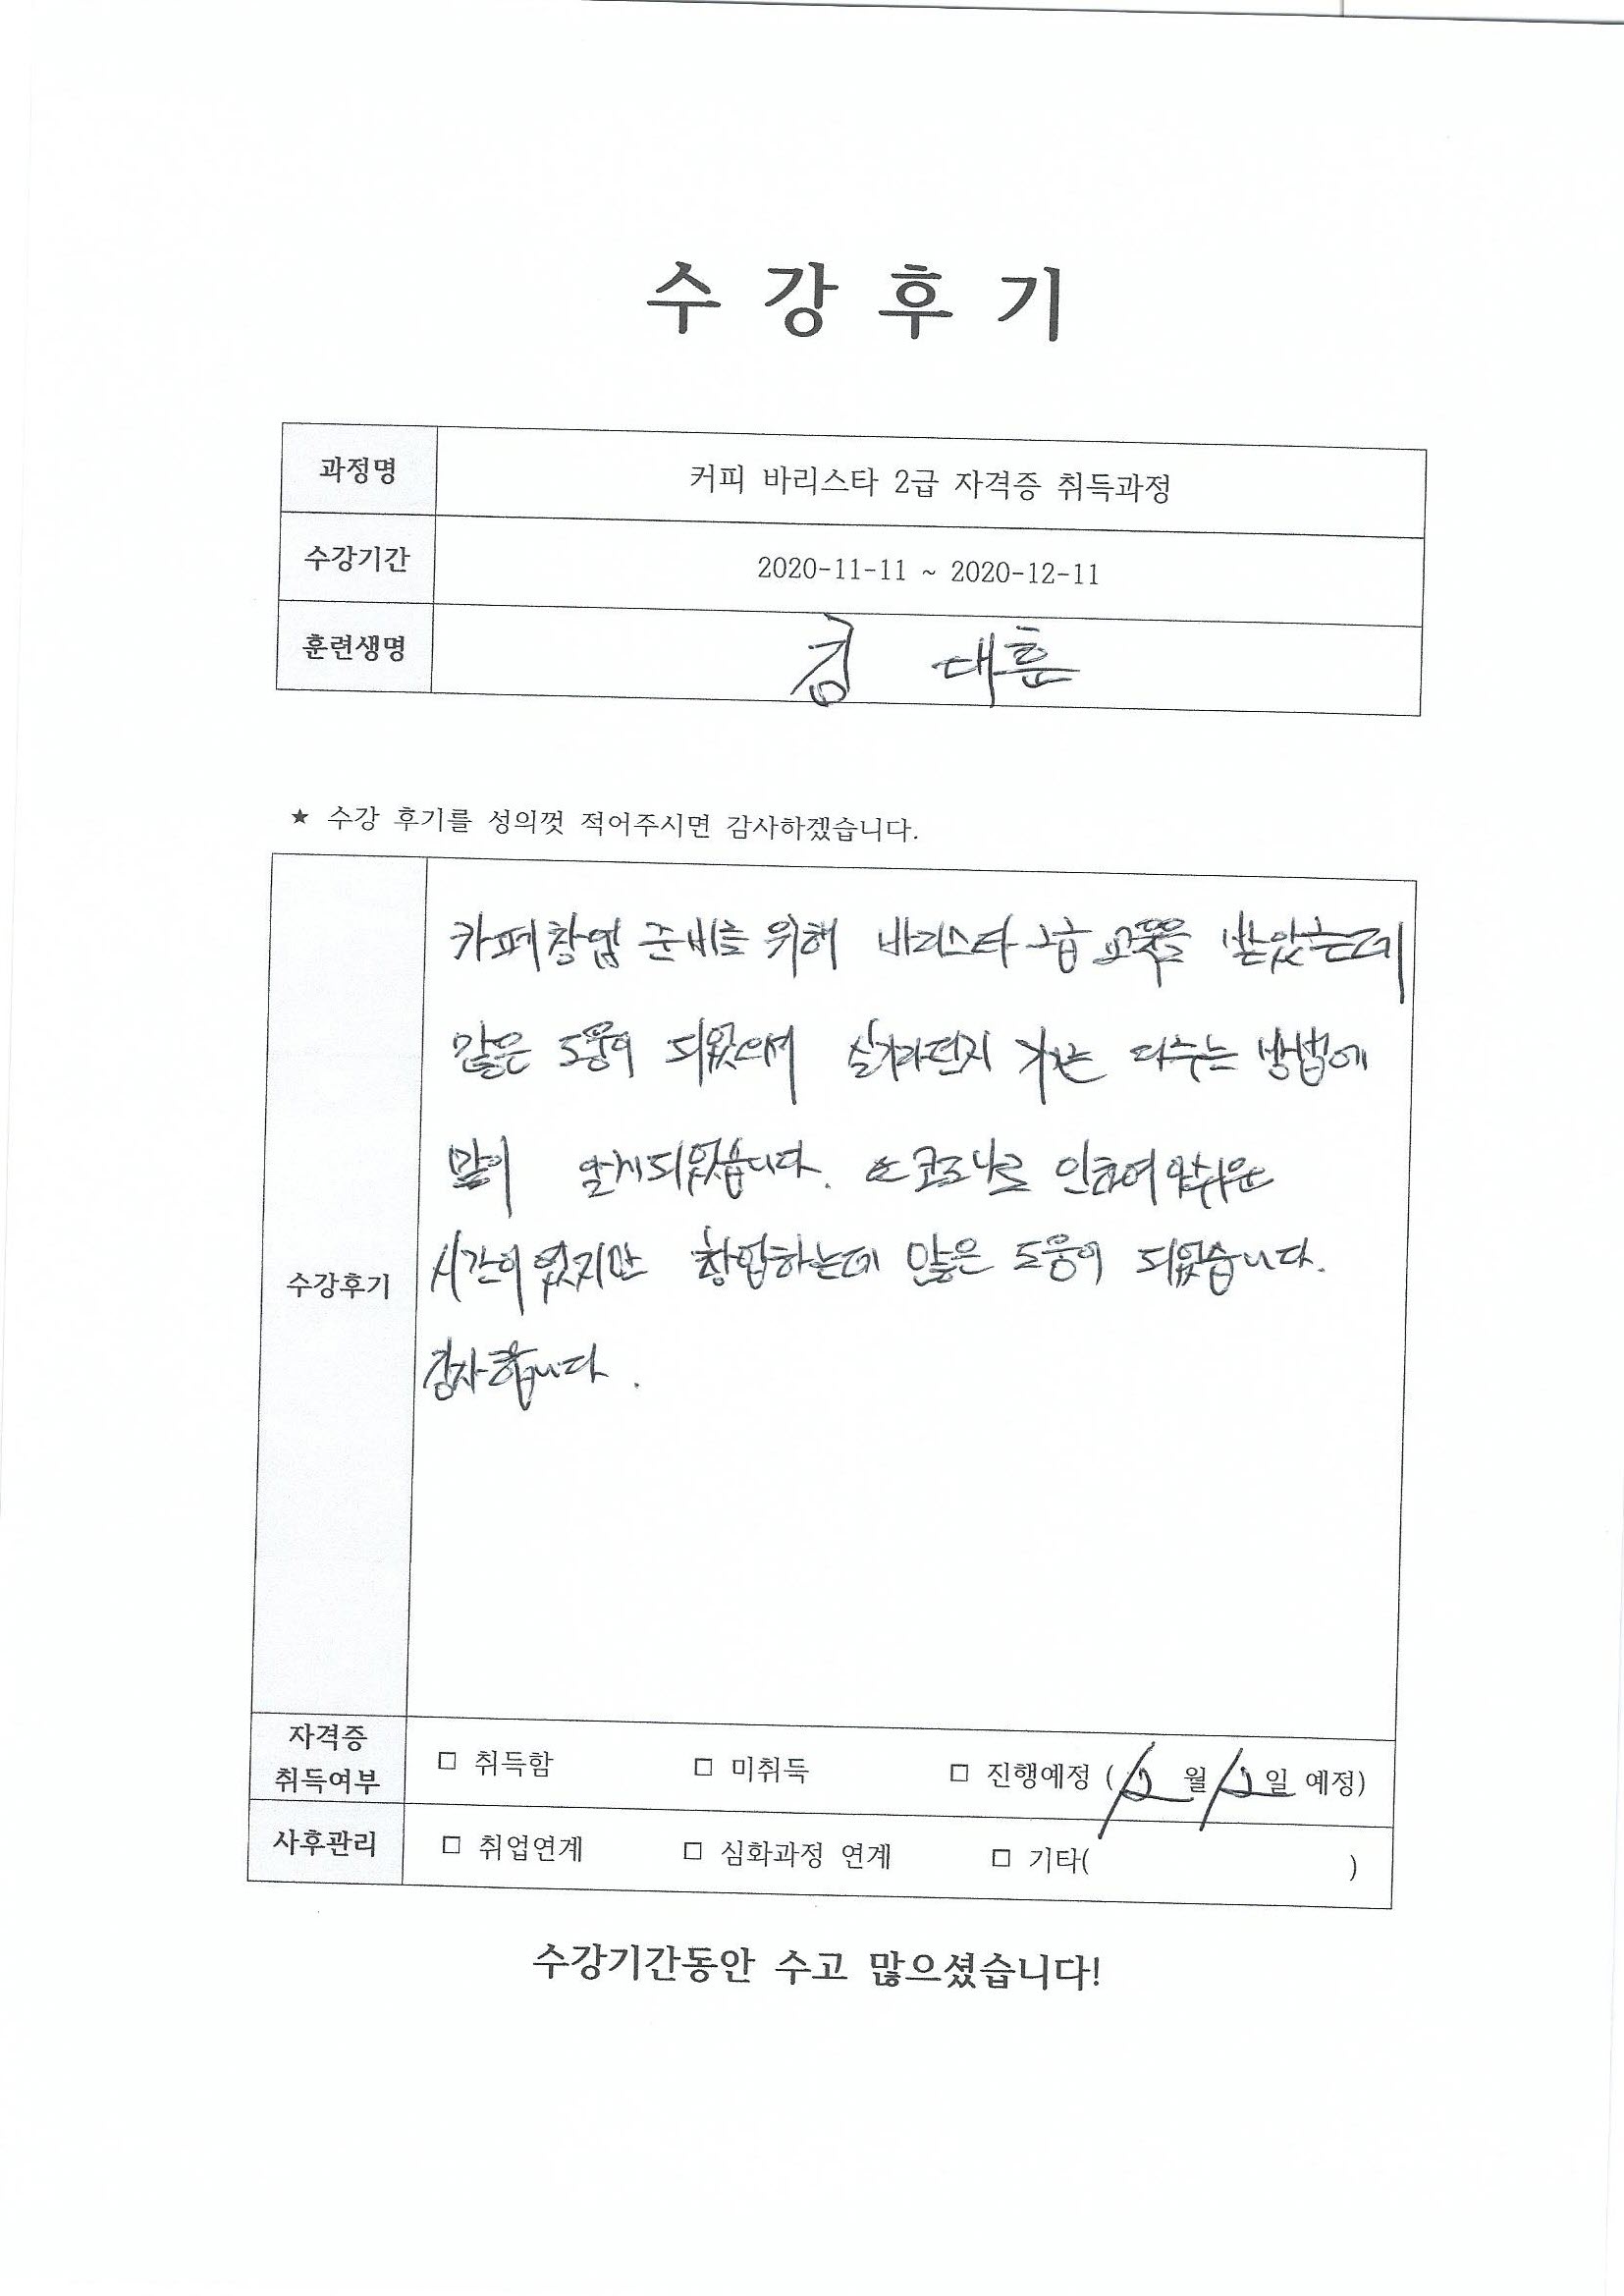 수 강 후 기
과정명 커피 바리스타 2급 자격증 취득과정
수강기간 2020-11-11 ~ 2020-12-11
훈련생명 김 대훈
★ 수강 후기를 성의껏 적어주시면 감사하겠습니다.
수강후기
카페창업 준비를 위해 바리스타 2급 교육을 받았는데
많은 도움이 되었으며 다루는 방법에
많이 알게되었습니다. 또 코로나로 인하여 아쉬운
시간이 있지만 창업하는데 많은 도움이 되었습니다.
감사합니다.
자격증 취득여부 □ 취득함 □ 미취득 □ 진행예정 (12월 12일 예정)
사후관리 □ 취업연계 □ 심화과정 연계 □ 기타( )
수강기간동안 수고 많으셨습니다!